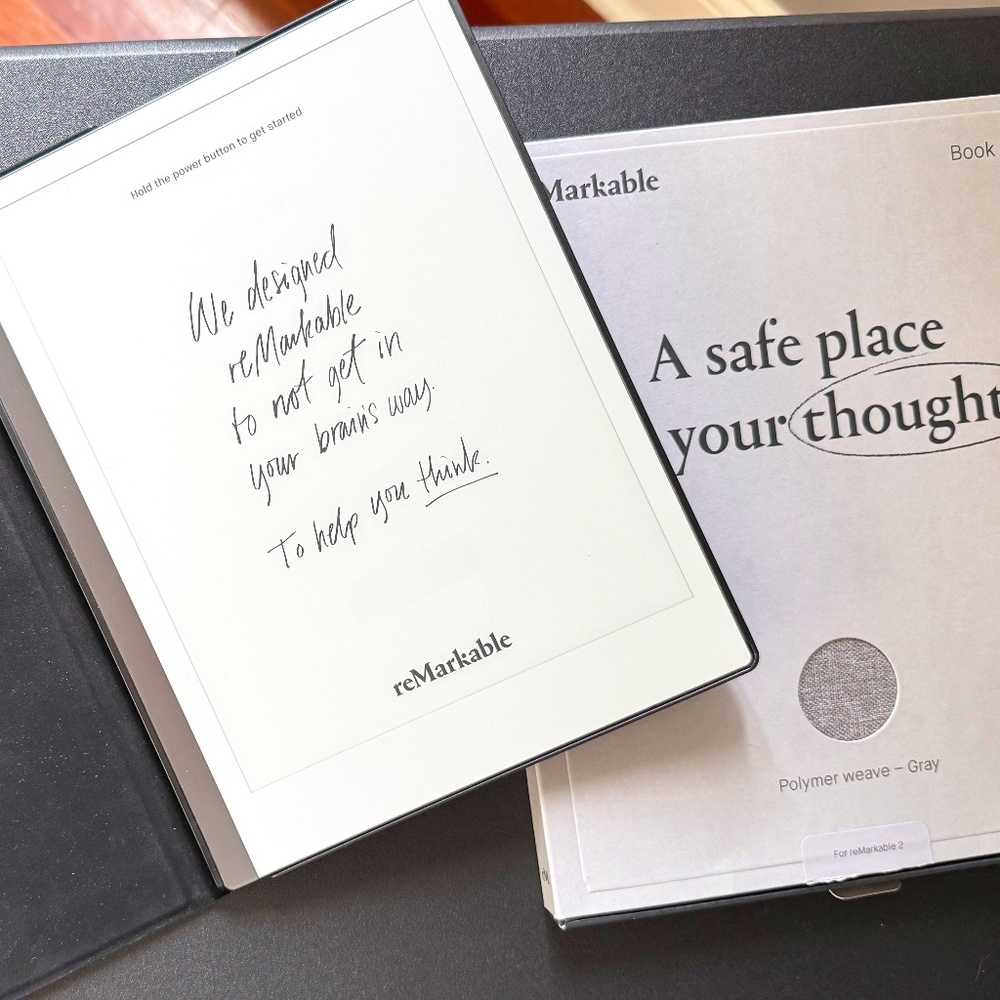 Hold the power button to get started
We designed
reMarkable
to not get in
your brain's way.
To help you think.
reMarkable
Markable
Book
A safe place
your thought
Polymer weave – Gray
For reMarkable 2